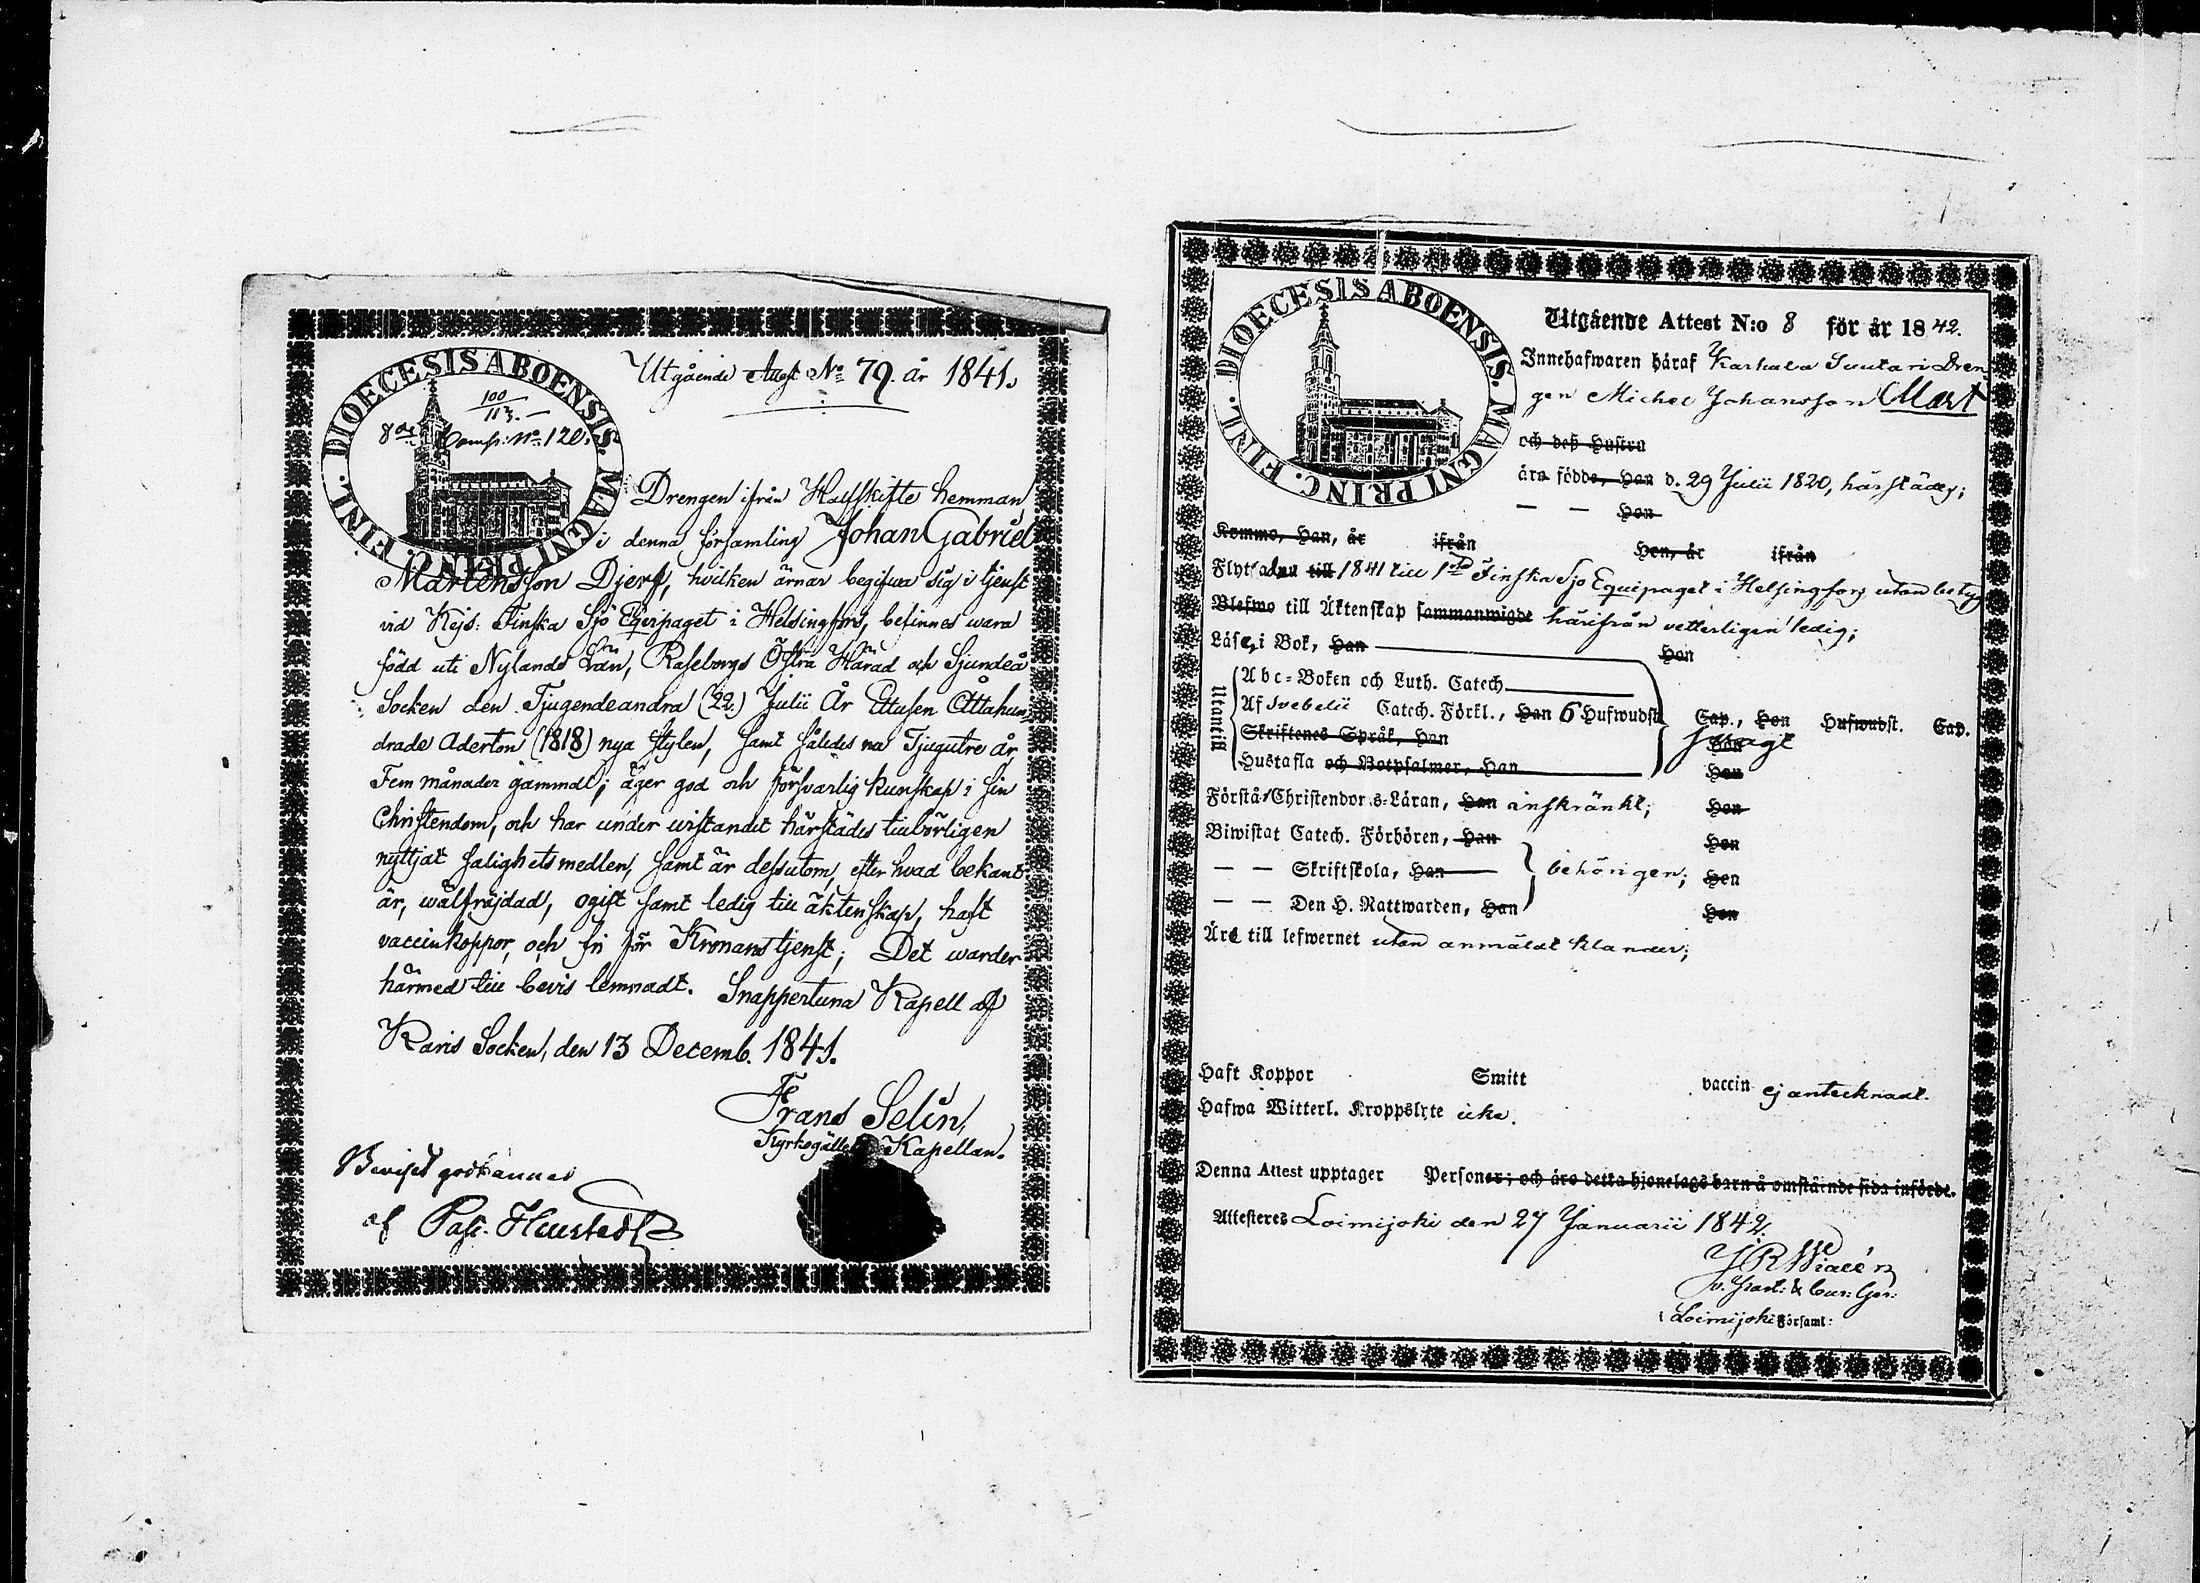 DIOECESIS ABOENSIS. MAGNI PRINC. FINL.
Utgående Attest No 79. år 1841.
100
113.
8de Comp: No 120.
Drengen ifrån Halfskifte hemman
i denna församling Johan Gabriel
Mårtensson Djerf, hvilken ärnar begifva sig i tjenst
vid Kejs: Finska Sjö Equipaget i Helsingfors, befinnes wara
född uti Nylands Län, Raseborgs Östra Härad och Sjundeå
Socken den Tjugendeandra (22.) Julii År Ettusen Åttahun-
drade Aderton (1818) nya stylen, samt således nu Tjugutre år
Fem månader gammal; äger god och försvarlig kunskap i sin
Christendom, och har under wistandet härstädes tillbörligen
nyttjat salighetsmedlen, samt är dessutom, efter hvad bekant
är, wälfräjdad, ogift samt ledig till äktenskap, haft
vaccinkoppor, och fri för Kronans tjenst; Det warder
härmed till bevis lemnadt. Snappertuna Kapell af
Karis Socken, den 13 Decemb. 1841.
Frans Selin,
Kapellan.
Beviset godkännes
af
DIOECESIS ABOENSIS. MAGNI PRINC. FINL.
Utgående Attest N:o 8 för år 1842.
Innehafwaren häraf Karhula Suutari Dren-
gen Michel Johansson Mart
och deß Hustru
äro födde, Han d. 29 Julii 1820, härstädes;
— — Hon
Kommo, Han, år ifrån Hon, år ifrån
Flyttadeu till 1841 till 1sta Finska Sjö Equipaget i Helsingfors utan betyg
Blefwo till Äktenskap sammanwigde härifrån vetterligen ledig;
Läse, i Bok, Han Hon
Utantill
Abc-Boken och Luth. Catech.
Af Svebelii Catech. Förkl., Han 6 Hufwudst. Cap., Hon Hufwudst. Cap.
Skriftenes Språk, Han svagt Hon
Hustafla och Botpsalmer, Han Hon
Förstå Christendoms-Läran, Han inskränkt; Hon
Biwistat Catech. Förhören, Han Hon
— — Skriftskola, Han behörigen; Hon
— — Den H. Nattwarden, Han Hon
Äre till lefwernet utan anmäldt klander;
Haft Koppor Smitt vaccin ej antecknadt.
Hafwa Witterl. Kroppslyte icke.
Denna Attest upptager Personer; och äro detta hjonelags barn å omstående sida införde.
Attesteres Loimijoki den 27 Januarii 1842.
i Loimijoki Församl: